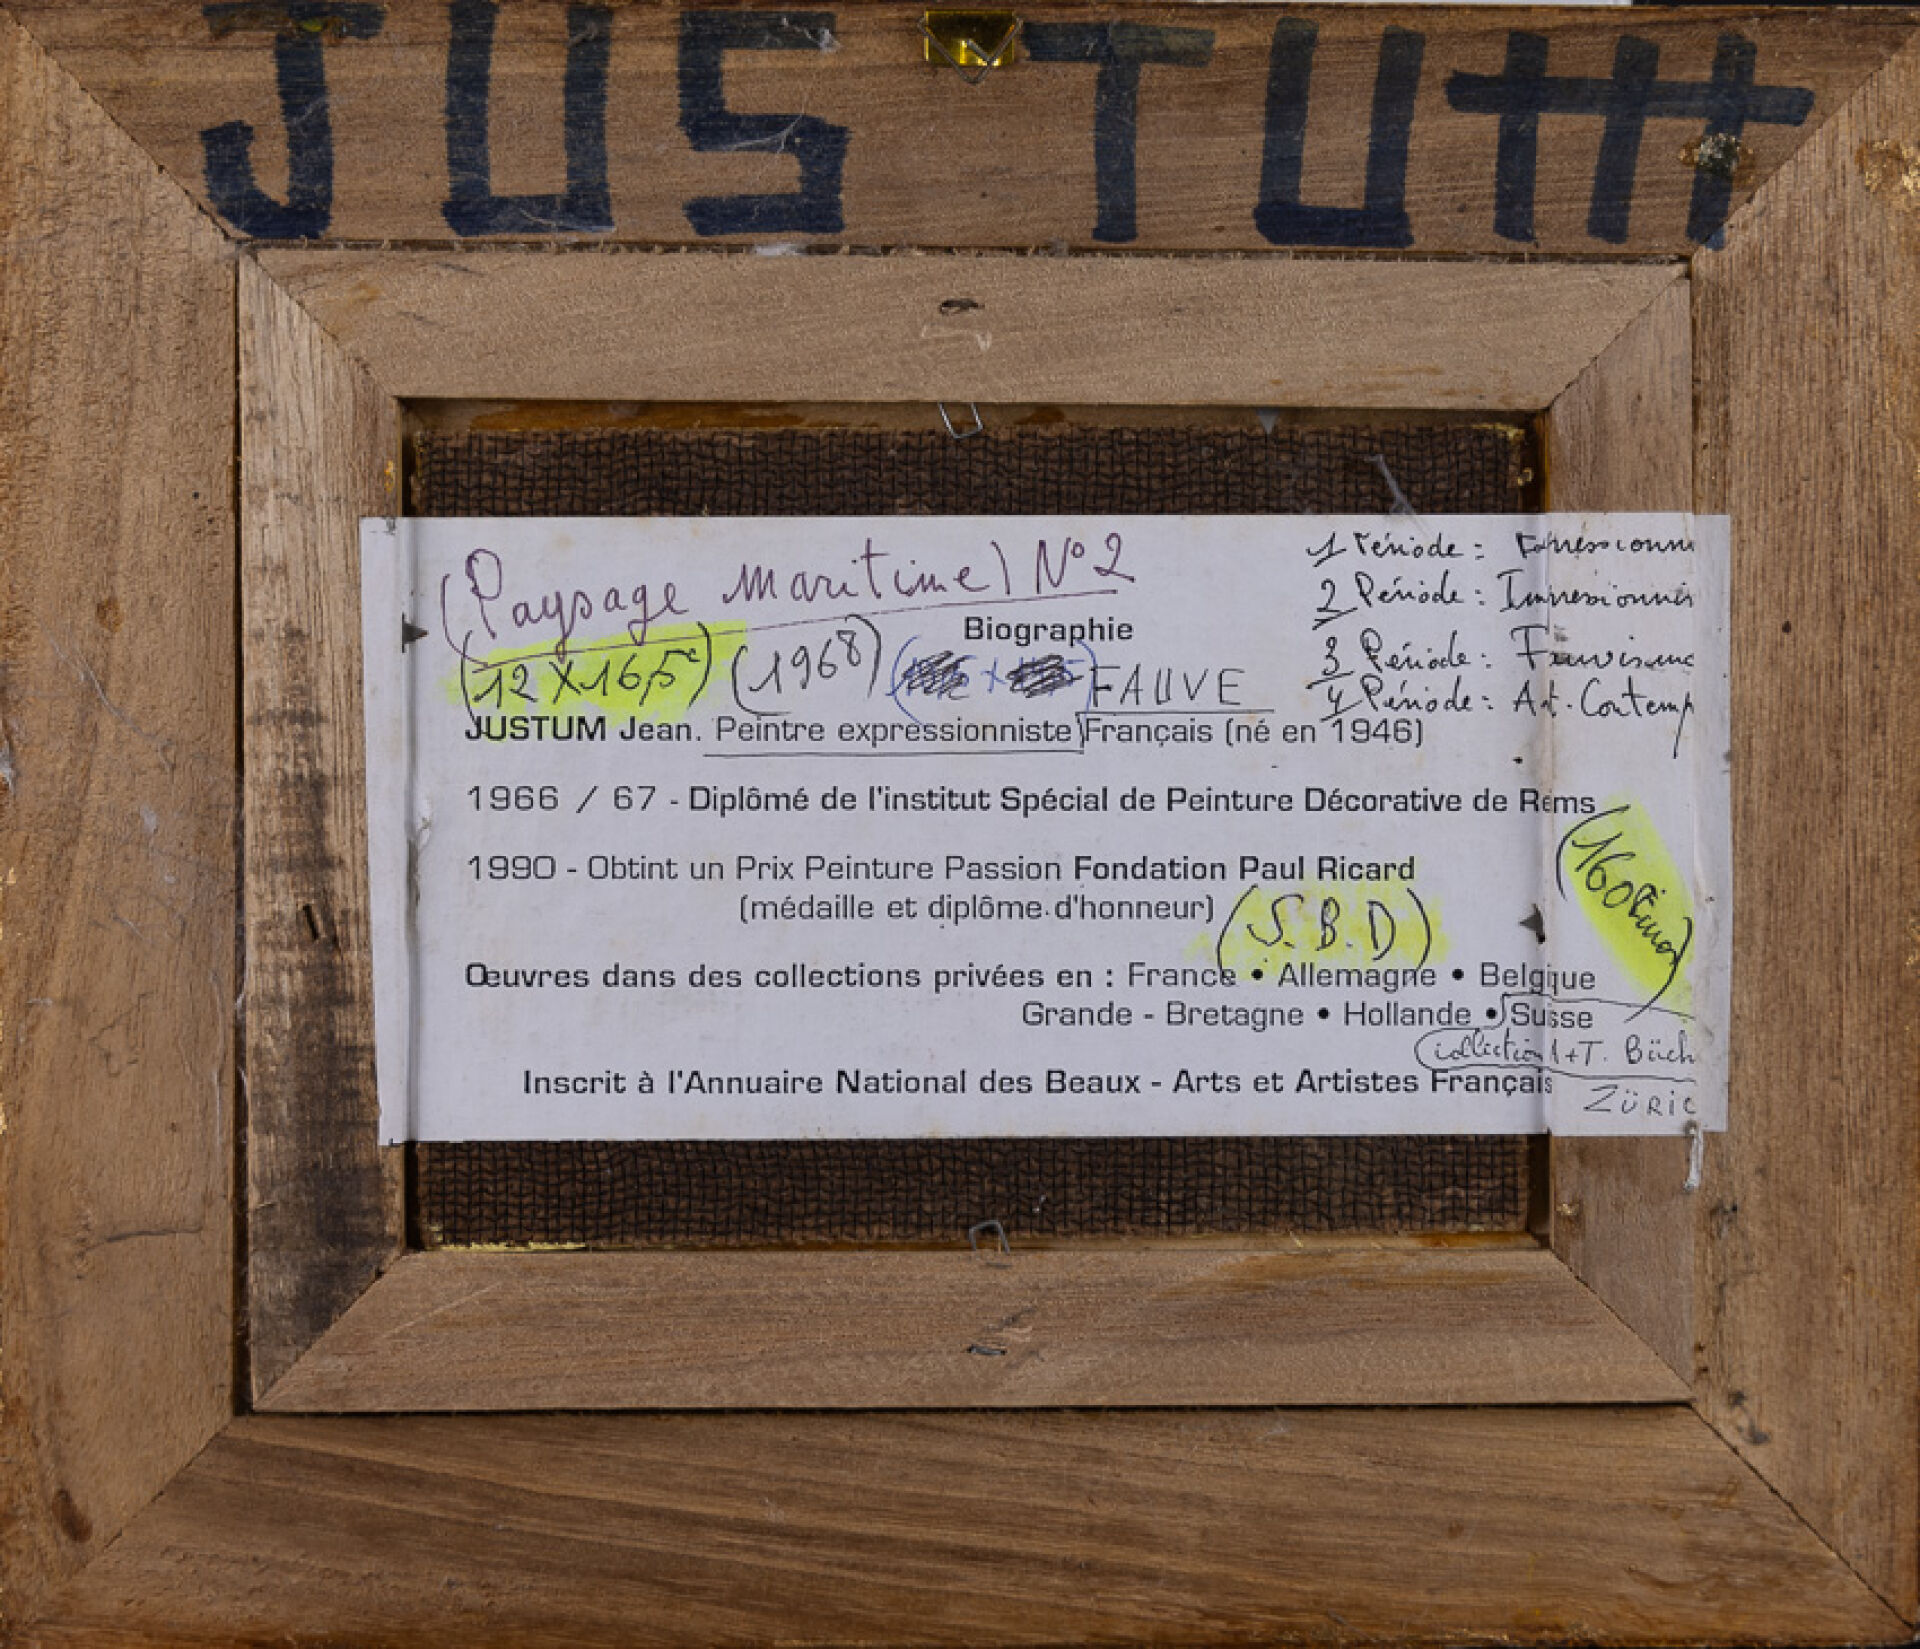 JUSTUM
(Paysage Maritime) N° 2
1 Période : Expressionni
2 Période : Impressionnis
Biographie
3 Période : Fauvisme
(12 X 16,5) (1968) FAUVE
4 Période : Art. Contemp
JUSTUM Jean. Peintre expressionniste Français (né en 1946)
1966 / 67 - Diplômé de l'institut Spécial de Peinture Décorative de Rems
1990 - Obtint un Prix Peinture Passion Fondation Paul Ricard
(médaille et diplôme d'honneur) (S.B.D)
Œuvres dans des collections privées en : France • Allemagne • Belgique
Grande - Bretagne • Hollande • Suisse
collection +T. Büch
Inscrit à l'Annuaire National des Beaux - Arts et Artistes Français
ZÜRIC